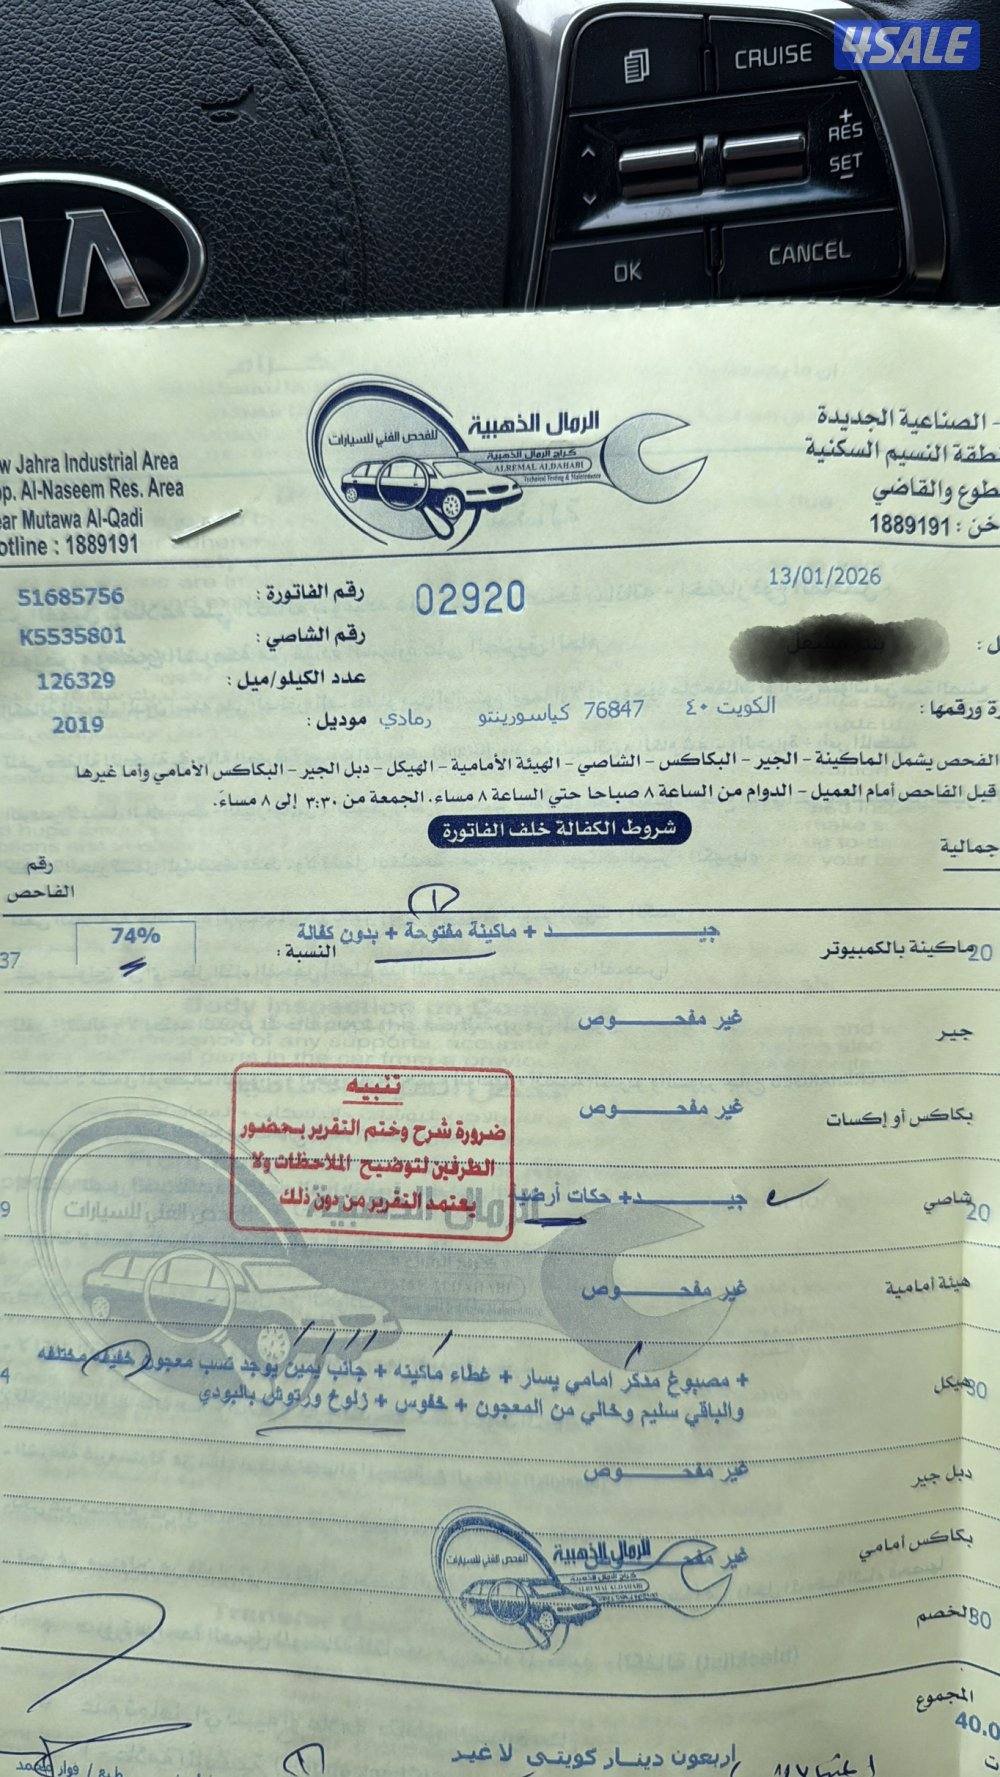 4SALE
CRUISE
+
RES
SET
-
OK
CANCEL
KIA
- الصناعية الجديدة
النسيم السكنية
والقاضي
1889191
الرمال الذهبية
للفحص الفني للسيارات
كراج الرمال الذهبية
ALREMAL ALDAHABI
Technical Testing & Maintenance
Jahra Industrial Area
Al-Naseem Res. Area
Mutawa Al-Qadi
: 1889191
13/01/2026
02920
رقم الفاتورة : 51685756
رقم الشاصي : K5535801
عدد الكيلو/ميل : 126329
ورقمها : الكويت ٤٠ 76847 كياسورينتو رمادي موديل : 2019
الفحص يشمل الماكينة - الجير - البكاكس - الشاصي - الهيئة الأمامية - الهيكل - دبل الجير - البكاكس الأمامي وأما غيرها
قبل الفاحص أمام العميل - الدوام من الساعة ٨ صباحا حتي الساعة ٨ مساء. الجمعة من ٣:٣٠ إلى ٨ مساءً.
شروط الكفالة خلف الفاتورة
رقم
الفاحص
ماكينة بالكمبيوتر 20 جيــد + ماكينة مفتوحة + بدون كفالة النسبة : 74% 37
جير غير مفحــوص
بكاكس أو إكسات غير مفحــوص
تنبيه
ضرورة شرح وختم التقرير بحضور
الطرفين لتوضيح الملاحظات ولا
يعتمد التقرير من دون ذلك
شاصي 20 جيــد+ حكات أرضية 9
هيئة أمامية غير مفحــوص
هيكل 30 + مصبوغ مدكر امامي يسار + غطاء ماكينه + جانب يمين يوجد نسب معجون خفيفه مختلفه 4
والباقي سليم وخالي من المعجون + خفوس + زلوخ ورتوش بالبودي
دبل جير غير مفحــوص
بكاكس أمامي غير
الرمال الذهبية
للفحص الفني للسيارات
كراج الرمال الذهبية
ALREMAL ALDAHABI
الخصم
المجموع
40.0
اربعون دينار كويتى لا غير